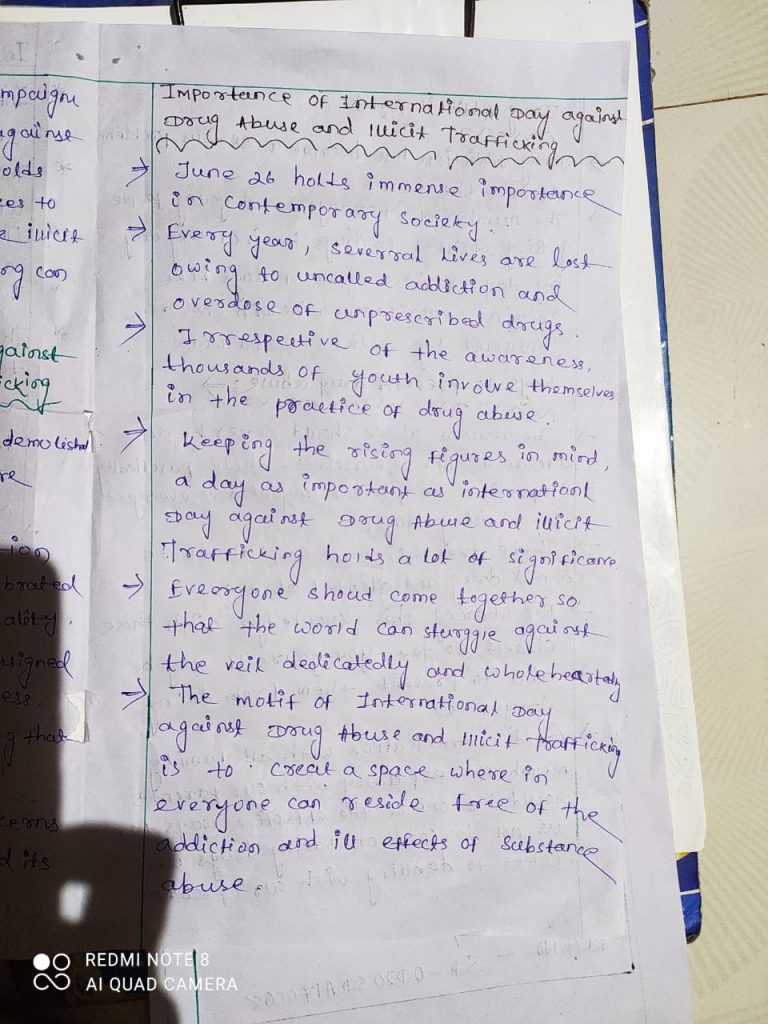 mpaign
against
olds
es to
illicit
ng can
gainst
icking
demolished
re
ion
brated
ality.
ssigned
ess.
g that
cerns
d its
Importance of International Day against
Drug Abuse and illicit Trafficking
→ June 26 holds immense importance
in contemporary society.
→ Every year, severral lives are lost
owing to uncalled addiction and
overdose of unprescribed drugs.
→ Irrespective of the awareness,
thousands of youth involve themselves
in the practice of drug abuse.
→ Keeping the rising figures in mind,
a day as important as internationl
Day against Drug Abuse and illicit
Trafficking holds a lot of significance
→ Eveoryone shoud come together, so
that the world can sturggle against
the veil dedicatedly and wholeheartedly
→ The motif of International Day
against Drug Abuse and illicit trafficking
is to creat a space where in
everyone can reside free of the
addiction and ill effects of substance
abuse.
REDMI NOTE 8
AI QUAD CAMERA